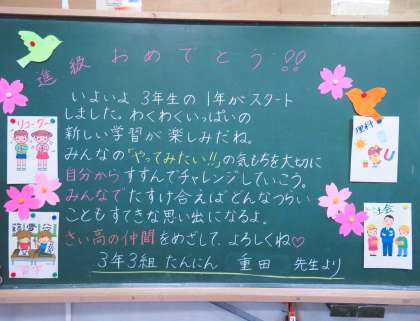 進級おめでとう!!
いよいよ 3年生の 1年がスタート
しました。わくわくいっぱいの
新しい学習が楽しみだね。
みんなの"やってみたい!!"の気もちを大切に
自分からすすんでチャレンジしていこう。
みんなでたすけ合えばどんなつらい
こともすてきな思い出になるよ。
さい高の仲間をめざして、よろしくね♡
3年3組 たんにん 重田 先生より
リコーダー
理科
社会
習字